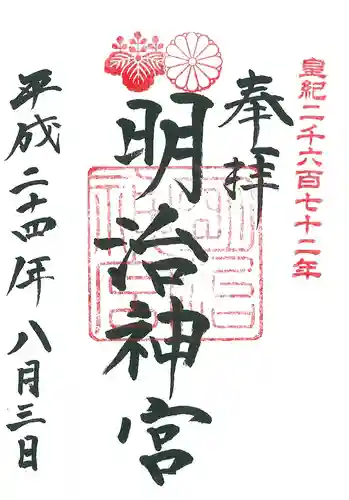 皇紀二千六百七十二年
奉拝
明治神宮
平成二十四年八月三日